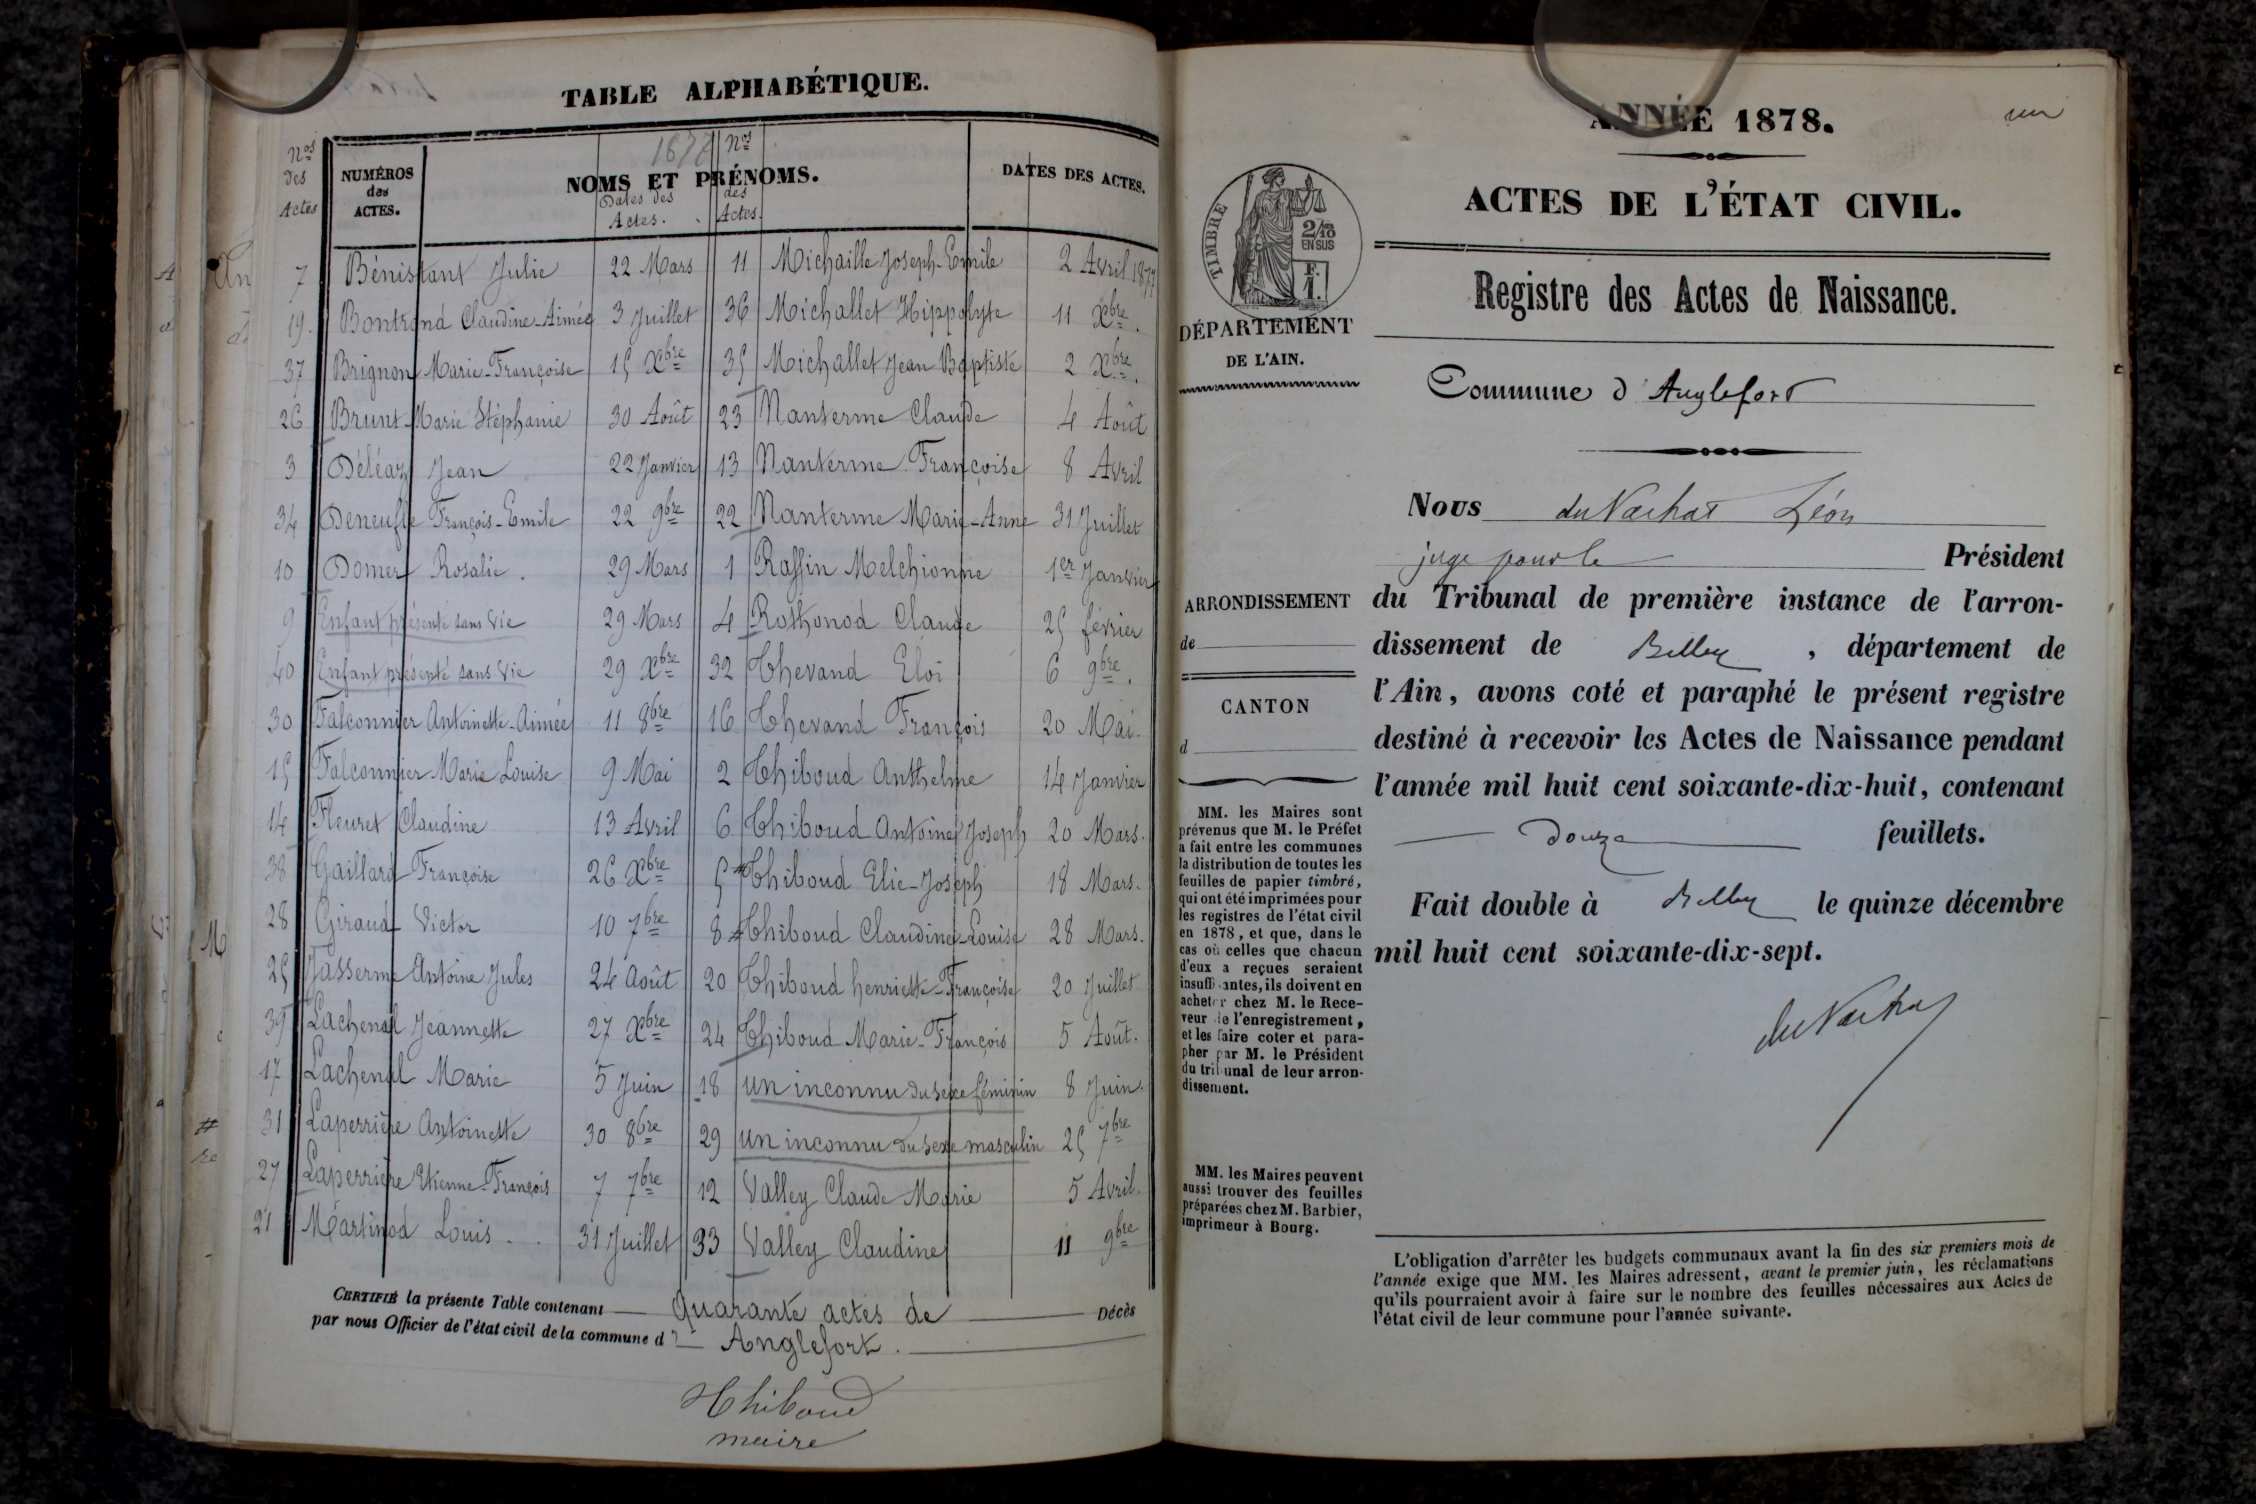 TABLE ALPHABÉTIQUE.
1877
Nos des Actes
NUMÉROS des ACTES.
NOMS ET PRÉNOMS.
Dates des Actes.
Nos des Actes.
DATES DES ACTES.
7 Bénistant Julie 22 Mars 11 Michaille Joseph-Emile 2 Avril 1877
19. Bontrond Claudine-Aimée 3 Juillet 36 Michallet Hippolyte 11 Xbre.
37 Brignon Marie-Françoise 15 Xbre 35 Michallet Jean Baptiste 2 Xbre.
26 Brunt Marie Stéphanie 30 Août 23 Nanterme Claude 4 Août
3 Déléaz Jean 22 Janvier 13 Nanterme Françoise 8 Avril
34 Deneufle François-Emile 22 9bre 22 Nanterme Marie-Anne 31 Juillet
10 Domer Rosalie. 29 Mars 1 Raffin Melchionne 1er Janvier
9 Enfant présenté sans vie 29 Mars 4 Rothonod Claude 25 février
40 Enfant présenté sans vie 29 Xbre 32 Thevand Eloi 6 9bre.
30 Falconnier Antoinette-Aimée 11 8bre 16 Thevand François 20 Mai.
15 Falconnier Marie Louise 9 Mai 2 Thiboud Anthelme 14 Janvier
14 Fleuret Claudine 13 Avril 6 Thiboud Antoine Joseph 20 Mars.
38 Gaillard Françoise 26 Xbre 5 Thiboud Elie-Joseph 18 Mars.
28 Giraud Victor 10 7bre 8 Thiboud Claudine-Louise 28 Mars.
25 Jasserme Antoine Jules 24 Août 20 Thiboud henriette-Françoise 20 Juillet
39 Lachenal Jeannette 27 Xbre 24 Thiboud Marie-François 5 Août.
17 Lachenal Marie 5 Juin 18 un inconnu du sexe féminin 8 Juin.
31 Laperrière Antoinette 30 8bre 29 un inconnu du sexe masculin 25 7bre
27 Laperrière Etienne-François 7 7bre 12 Valley Claude Marie 5 Avril.
21 Martinod Louis. . 31 Juillet 33 Valley Claudine 11 9bre
CERTIFIÉ la présente Table contenant Quarante actes de Décès
par nous Officier de l'état civil de la commune d' Anglefort.
Thiboud
maire
un
ANNÉE 1878.
ACTES DE L'ÉTAT CIVIL.
TIMBRE
2/10 EN SUS
F. 1.
DÉPARTEMENT
DE L'AIN.
Registre des Actes de Naissance.
Commune d'Anglefort
Nous du Vachat Léon
juge pour le Président
du Tribunal de première instance de l'arron-
dissement de Belley, département de
l'Ain, avons coté et paraphé le présent registre
destiné à recevoir les Actes de Naissance pendant
l'année mil huit cent soixante-dix-huit, contenant
douze feuillets.
Fait double à Belley le quinze décembre
mil huit cent soixante-dix-sept.
du Vachat
ARRONDISSEMENT
de
CANTON
d
MM. les Maires sont
prévenus que M. le Préfet
a fait entre les communes
la distribution de toutes les
feuilles de papier timbré,
qui ont été imprimées pour
les registres de l'état civil
en 1878, et que, dans le
cas où celles que chacun
d'eux a reçues seraient
insuffisantes, ils doivent en
acheter chez M. le Rece-
veur de l'enregistrement,
et les faire coter et para-
pher par M. le Président
du tribunal de leur arron-
dissement.
MM. les Maires peuvent
aussi trouver des feuilles
préparées chez M. Barbier,
imprimeur à Bourg.
L'obligation d'arrêter les budgets communaux avant la fin des six premiers mois de
l'année exige que MM. les Maires adressent, avant le premier juin, les réclamations
qu'ils pourraient avoir à faire sur le nombre des feuilles nécessaires aux Actes de
l'état civil de leur commune pour l'année suivante.